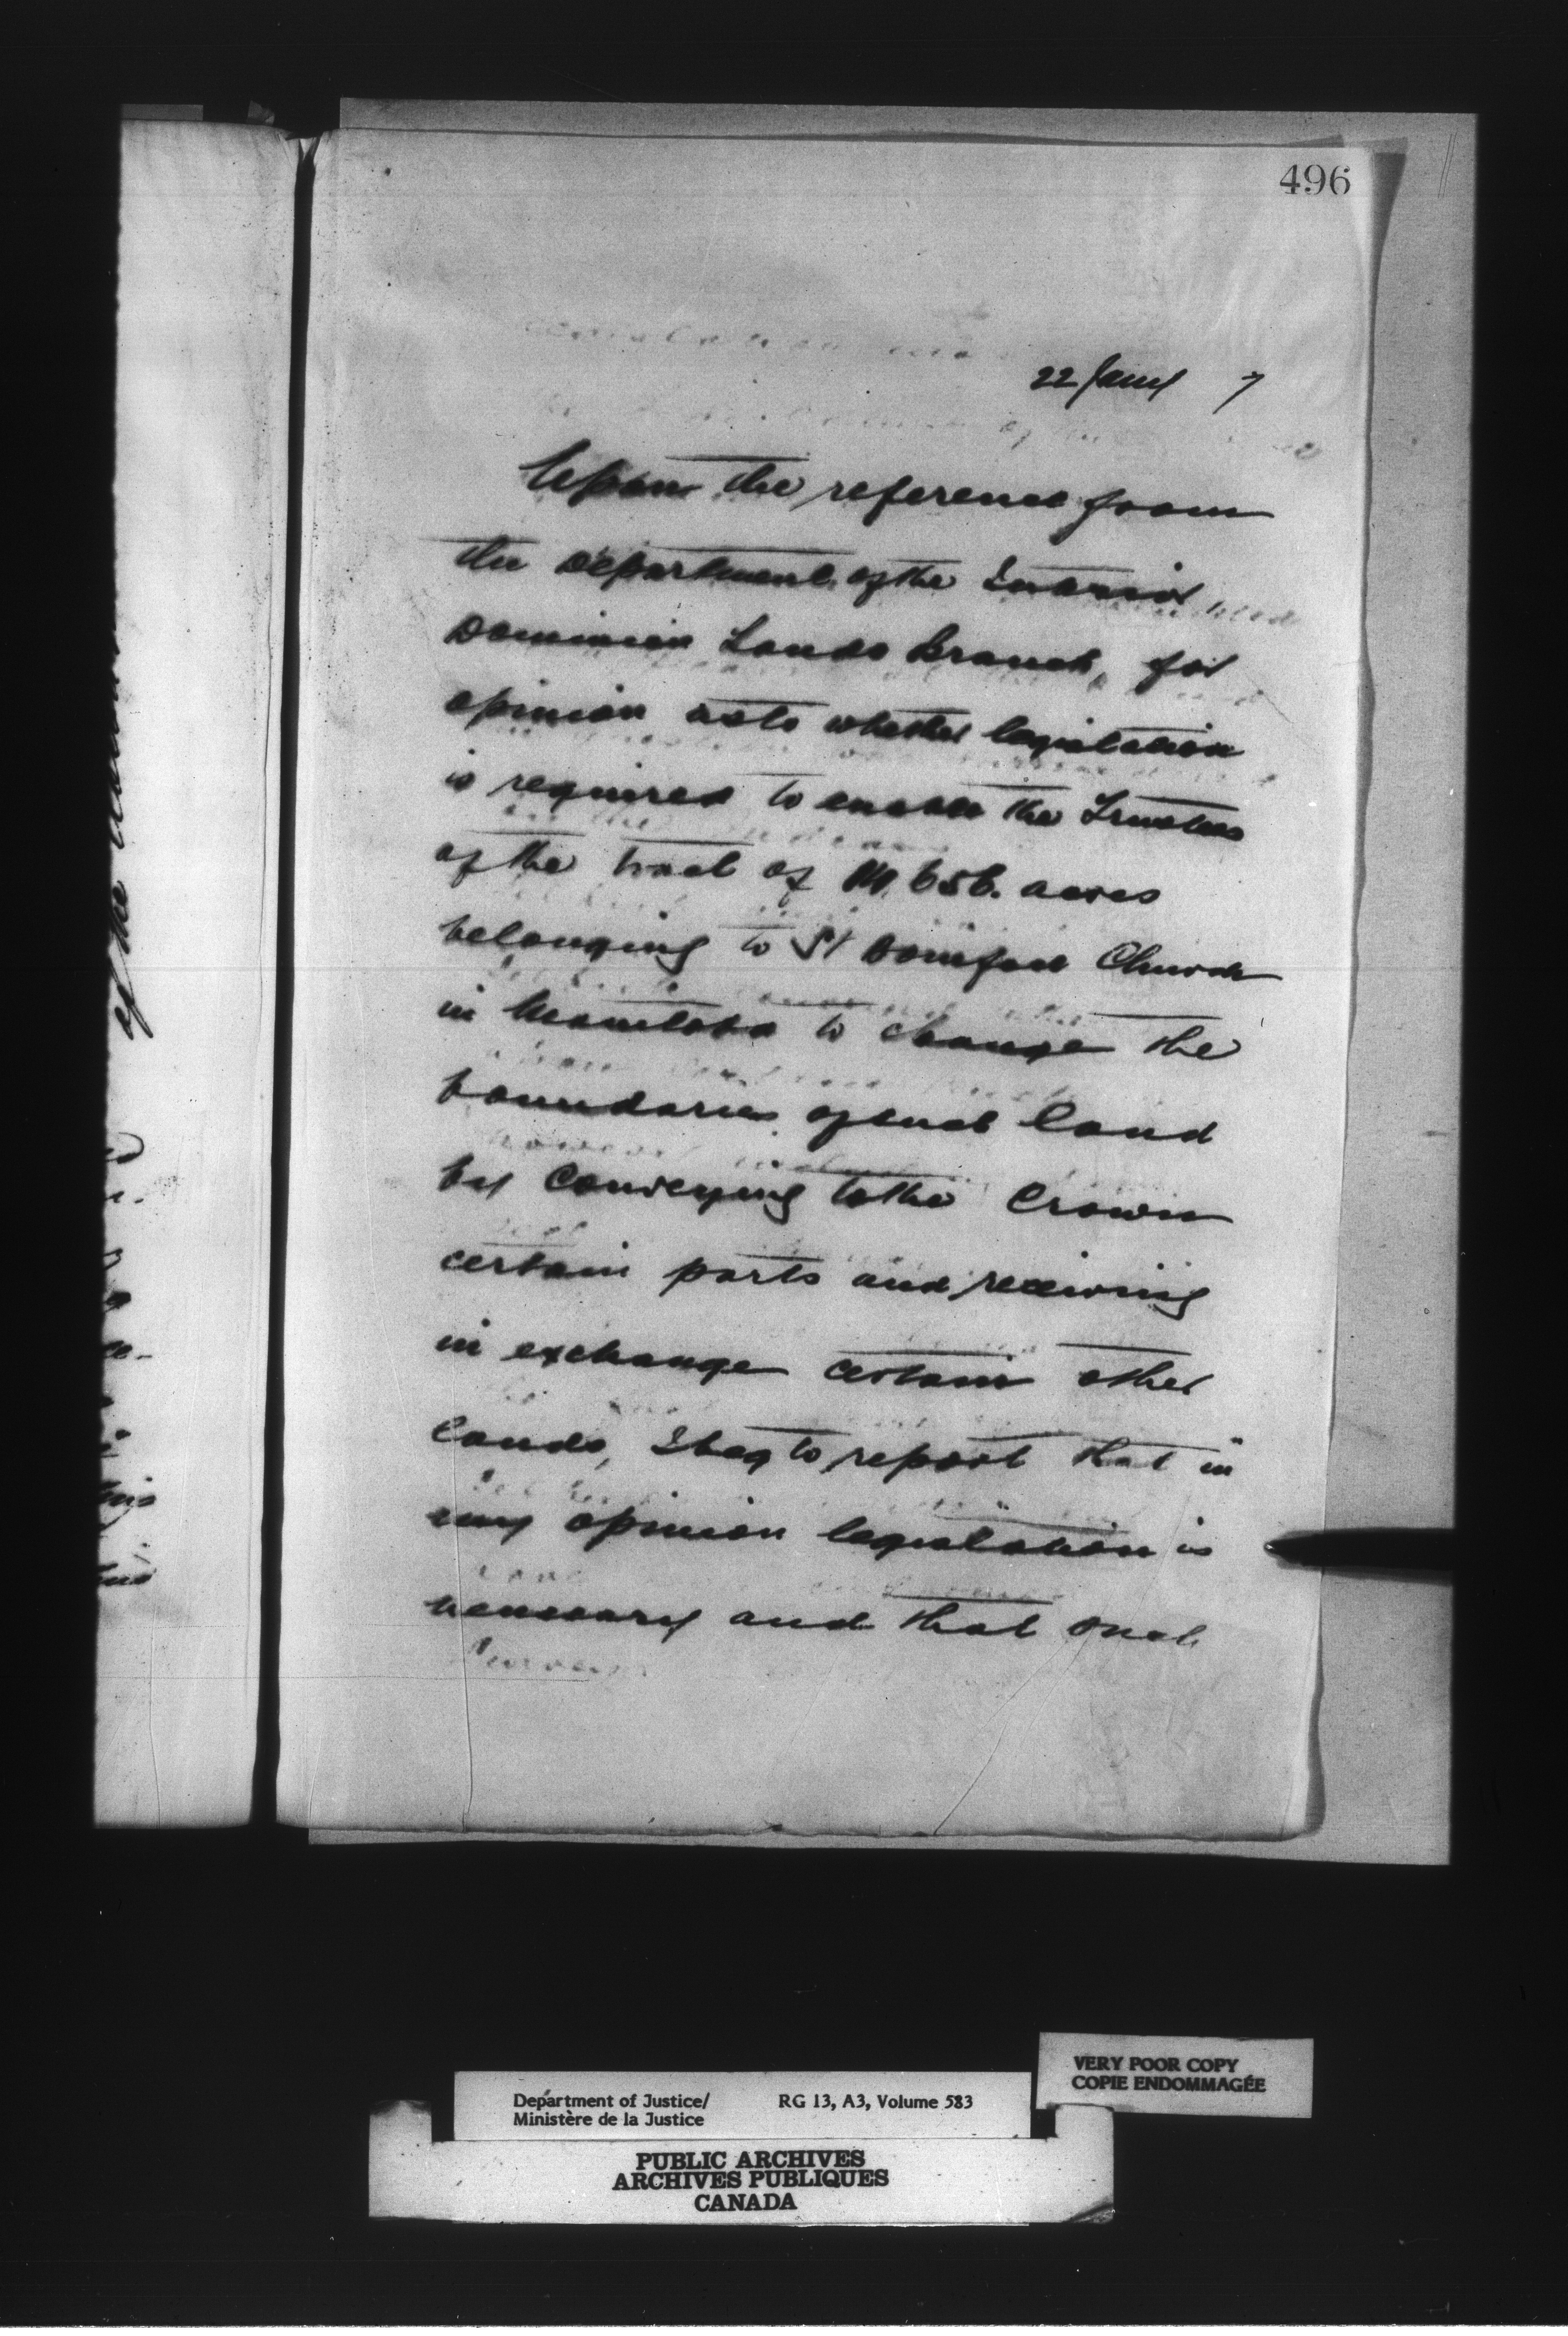 496
22 Jany 7
Upon the reference from
the Department of the Interior
Dominion Lands Branch, for
opinion as to whether legislation
is required to enable the Trustees
of the tract of 656. acres
belonging to St Boniface Church
in Manitoba to change the
boundaries of such land
by conveying to the Crown
certain parts and receiving
in exchange certain other
lands, I beg to report that in
my opinion legislation is
necessary and that such
of the
VERY POOR COPY
COPIE ENDOMMAGÉE
Department of Justice/ RG 13, A3, Volume 583
Ministère de la Justice
PUBLIC ARCHIVES
ARCHIVES PUBLIQUES
CANADA